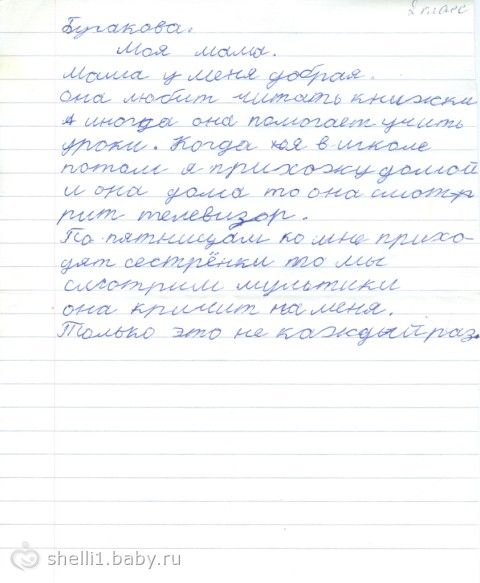 2 класс
Бугакова.
Моя мама.
Мама у меня добрая.
она любит читать книжки
А иногда она помогает учить
уроки. Когда я в школе
потом я прихожу домой
и она дома то она смот-
рит телевизор.
По пятницам ко мне прихо-
дят сестрёнки то мы
смотрим мультики
она кричит на меня.
Только это не каждый раз.
shelli1.baby.ru